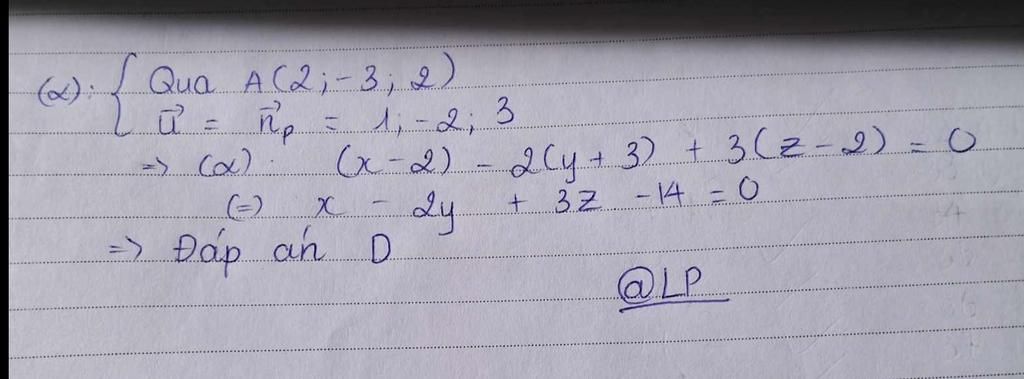 (α): { Qua A(2; -3; 2)
u⃗ = n⃗p = 1; -2; 3
=> (α): (x - 2) - 2(y + 3) + 3(z - 2) = 0
(=) x - 2y + 3z - 14 = 0
=> Đáp án D
@LP